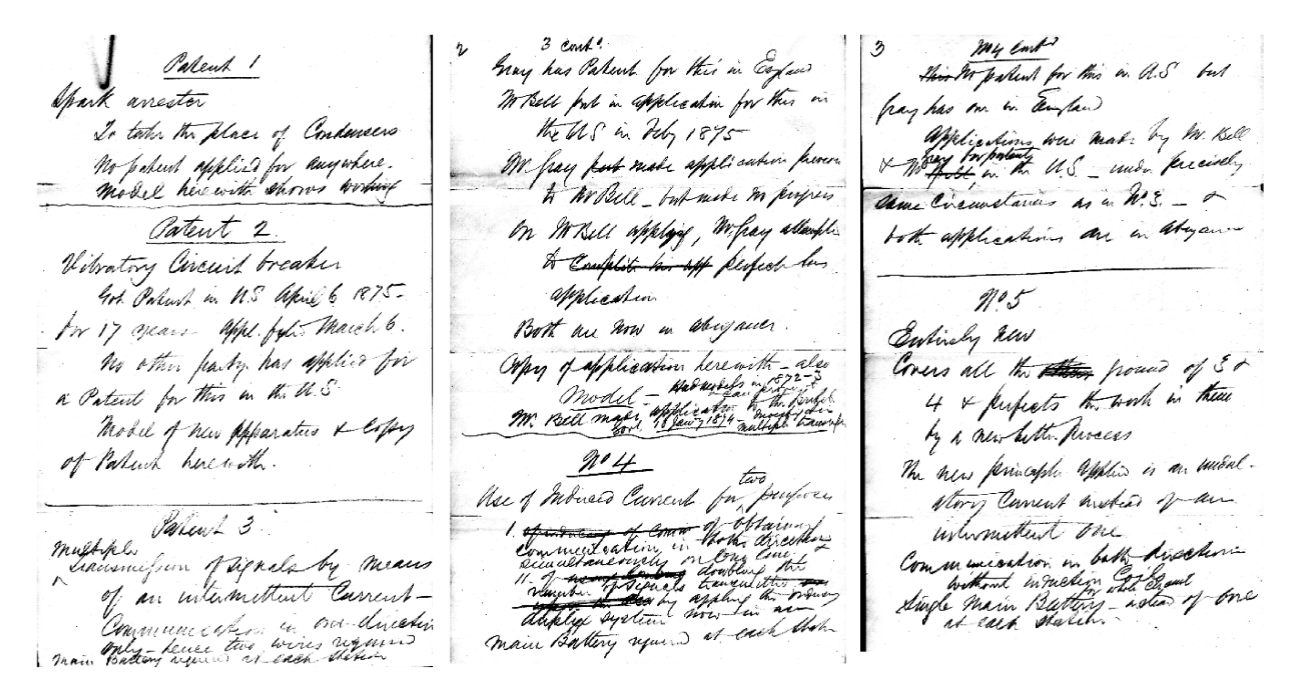 Patent 1
Spark arrester
To take the place of Condensers
No patent applied for anywhere.
Model herewith shows working
Patent 2.
Vibratory Circuit breaker
Got Patent in U.S April 6 1875-
for 17 years - appl. March 6.
No other party has applied for
a Patent for this in the U.S
Model of new apparatus & Copy
of Patent herewith.
Patent 3
Multiple
Transmission of signals by means
of an intermittent Current -
Communication in one direction
only - hence two wires required
Main Battery required at each station
2
3 contd.
Gray has Patent for this in England
Mr Bell put in application for this in
the US in Feby 1875
Mr Gray put made application previous
to Mr Bell - but made no progress
On Mr Bell applying, Mr Gray attempts
to Complete his app perfect his
application
Both are now in abeyance.
Copy of application herewith - also
Had models in 1872-3
Model -
Mr. Bell made application to the British
Govt. 1874 -
multiple
No 4
two
Use of Induced Current for purposes
1. of obtaining
communication in both directions
simultaneously on long line &
11. of doubling the
number of signals transmitted
by applying the ordinary
duplex system now in use
Main Battery required at each station
3
No 4 contd
This No patent for this in U.S but
Gray has one in England
Applications were made by Mr. Bell
Gray for patents
& Mr in the U.S - under precisely
same circumstances as in No. 3. - &
both applications are in abeyance
No. 5
Entirely new
Covers all the ground of 3 &
4 & perfects the work in them
by a new better process
The new principle applied is an undul-
atory current instead of an
intermittent one
Communication in both directions
without induction
for whole Circuit
Single Main Battery - instead of one
at each station -